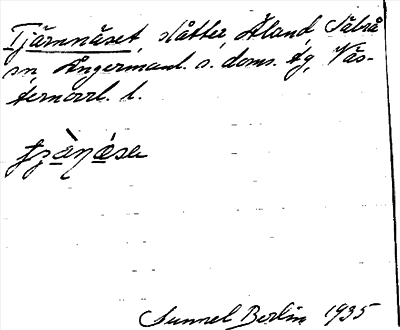 Tjärnnäset, slåtter, Åland, Säbrå
sn, Ångermanl. s. doms. tg, Väs-
ternorrl. l.
Gunnel Berlin 1935